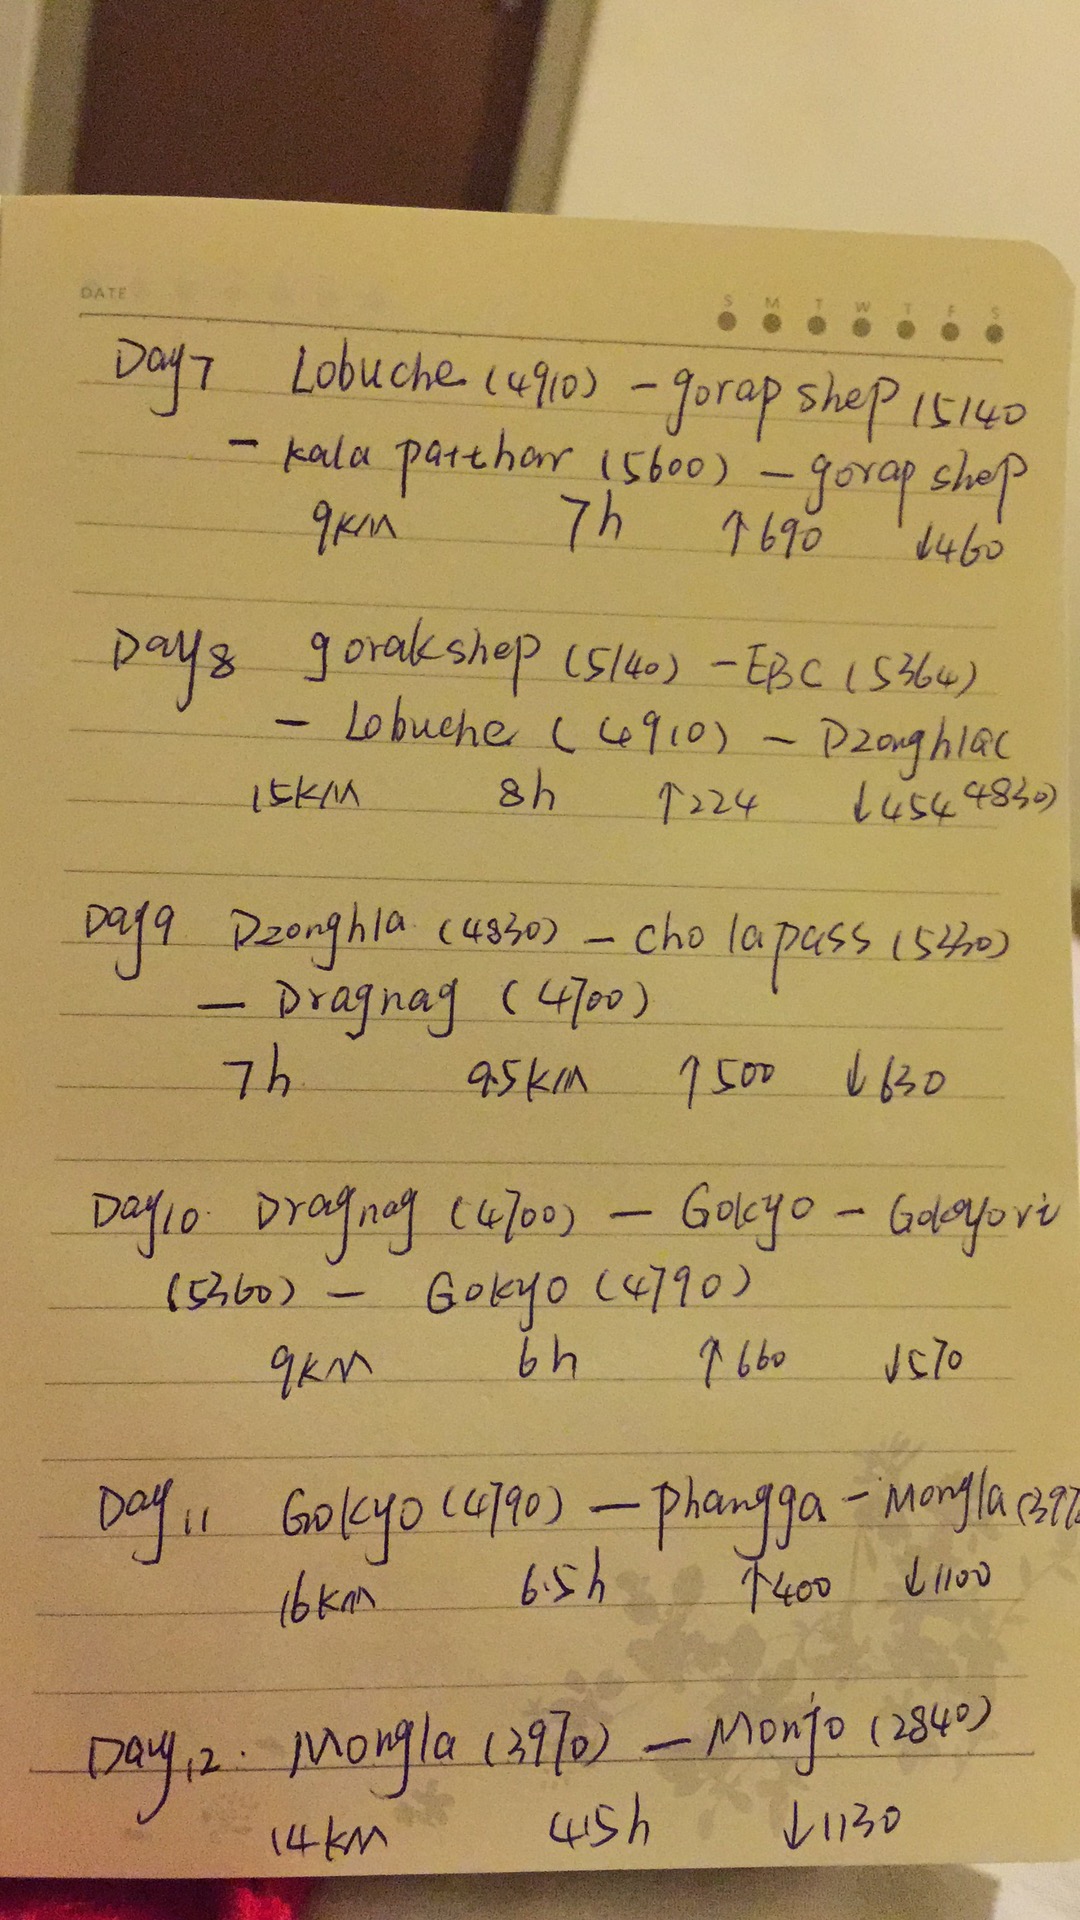 DATE
S M T W T F S
Day7 Lobuche (4910) - gorap shep (5140
- kala patthar (5600) - gorap shep
9KM 7h ↑690 ↓460
Day8 gorakshep (5140) - EBC (5364)
- Lobuche (4910) - Dzonghla(
15KM 8h ↑224 ↓454 4830)
Day9 Dzonghla (4830) - cho la pass (5330)
- Dragnag (4700)
7h 9.5KM ↑500 ↓630
Day10. Dragnag (4700) - Gokyo - Gokyori
(5360) - Gokyo (4790)
9KM 6h ↑660 ↓570
Day11 Gokyo (4790) - phangga - Mongla (397
16KM 6.5h ↑400 ↓1100
Day12. Mongla (3970) - Monjo (2840)
14KM 4.5h ↓1130